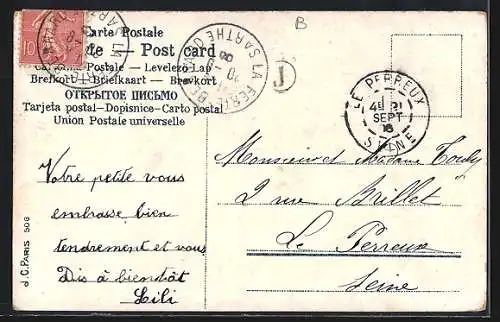 B
Carte Postale
te — Post card
Postale — Levelezo-Lap
Brefkort — Briefkaart — Brevkort
ОТКРЫТОЕ ПИСЬМО
Tarjeta postal-Dopisnice-Carto postal
Union Postale universelle
10
LA FERT
SARTHE
J
LE PERREUX
SEPT
SEINE
Votre petite vous
embrasse bien
tendrement et vous
Dis à bientôt
Lili
Monsieur et Madame
2 rue Brillet
Le Perreux
Seine
J.C. PARIS 508